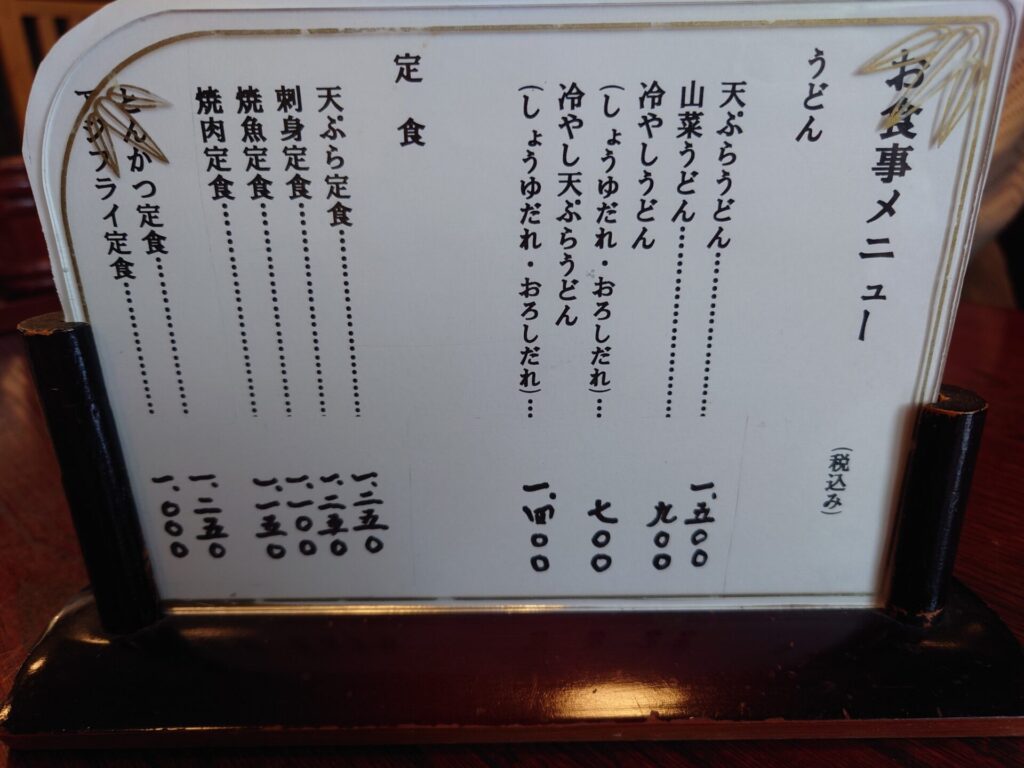 お食事メニュー
(税込み)
うどん
天ぷらうどん……………… 一、五〇〇
山菜うどん……………… 九〇〇
冷やしうどん
(しょうゆだれ・おろしだれ)… 七〇〇
冷やし天ぷらうどん
(しょうゆだれ・おろしだれ)… 一、四〇〇
定食
天ぷら定食……………… 一、二五〇
刺身定食……………… 一、二五〇
焼魚定食……………… 一、一〇〇
焼肉定食……………… 一、一五〇
とんかつ定食……………… 一、二五〇
アジフライ定食……………… 一、〇〇〇